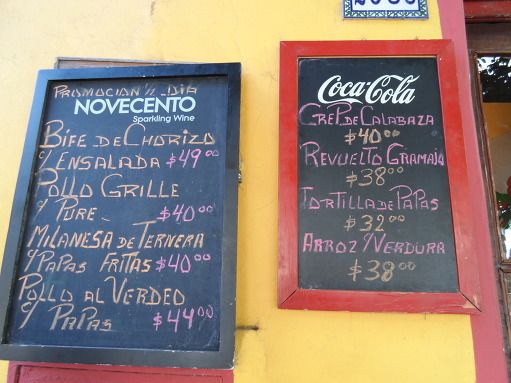 PROMOCION 1/2 DIA
NOVECENTO
Sparkling Wine
BIFE DE CHORIZO
C/ ENSALADA $49.00
POLLO GRILLE
C/ PURE $40.00
MILANESA DE TERNERA
C/ PAPAS FRITAS $40.00
POLLO AL VERDEO
C/ PAPAS $44.00
Coca-Cola
CREP DE CALABAZA
$40.00
REVUELTO GRAMAJO
$38.00
TORTILLA DE PAPAS
$32.00
ARROZ C/ VERDURA
$38.00